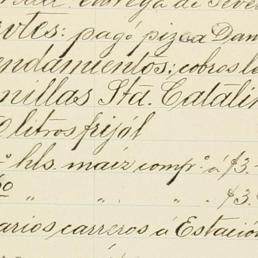 entrega de
rtes: pagó pizca Dam
endamientos; cobros lo
nillas Sta. Catalin
0 litros frijól
º hls. maíz comp.º á $3.-
50 " " " " $3.
arios carreros á Estación